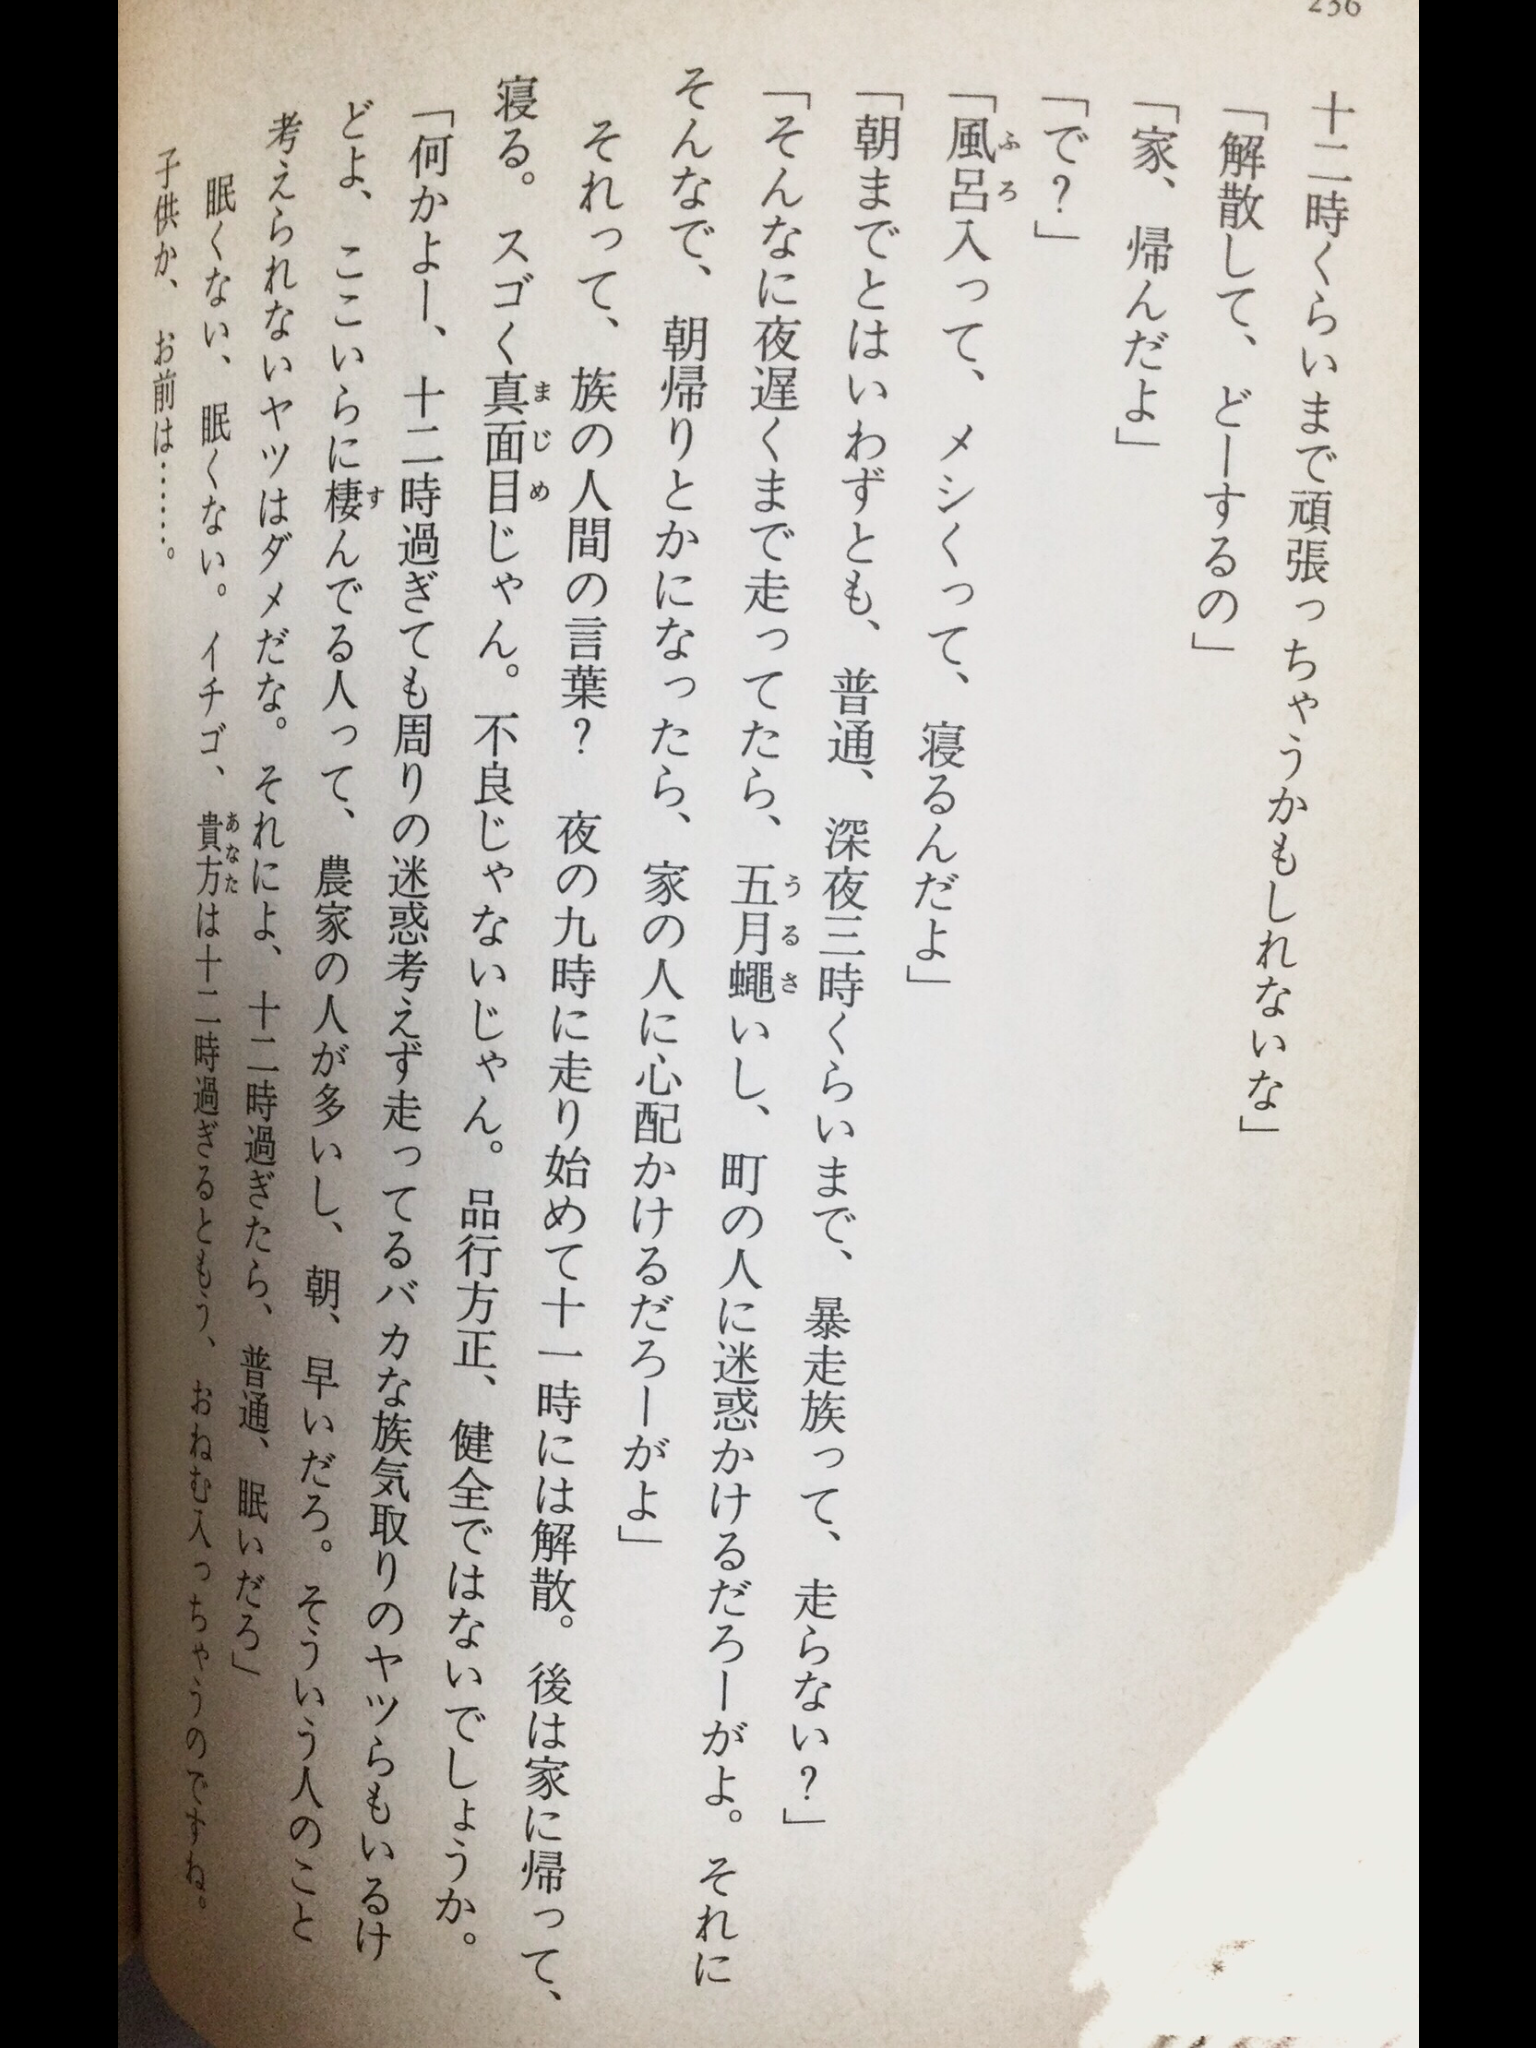 236
十二時くらいまで頑張っちゃうかもしれないな」
「解散して、どーするの」
「家、帰んだよ」
「で？」
「風呂入って、メシくって、寝るんだよ」
「朝までとはいわずとも、普通、深夜三時くらいまで、暴走族って、走らない？」
「そんなに夜遅くまで走ってたら、五月蠅いし、町の人に迷惑かけるだろーがよ。それに
そんなで、朝帰りとかになったら、家の人に心配かけるだろーがよ」
それって、族の人間の言葉？　夜の九時に走り始めて十一時には解散。後は家に帰って、
寝る。スゴく真面目じゃん。不良じゃないじゃん。品行方正、健全ではないでしょうか。
「何かよー、十二時過ぎても周りの迷惑考えず走ってるバカな族気取りのヤツらもいるけ
どよ、ここいらに棲んでる人って、農家の人が多いし、朝、早いだろ。そういう人のこと
考えられないヤツはダメだな。それによ、十二時過ぎたら、普通、眠いだろ」
眠くない、眠くない。イチゴ、貴方は十二時過ぎるともう、おねむ入っちゃうのですね。
子供か、お前は……。